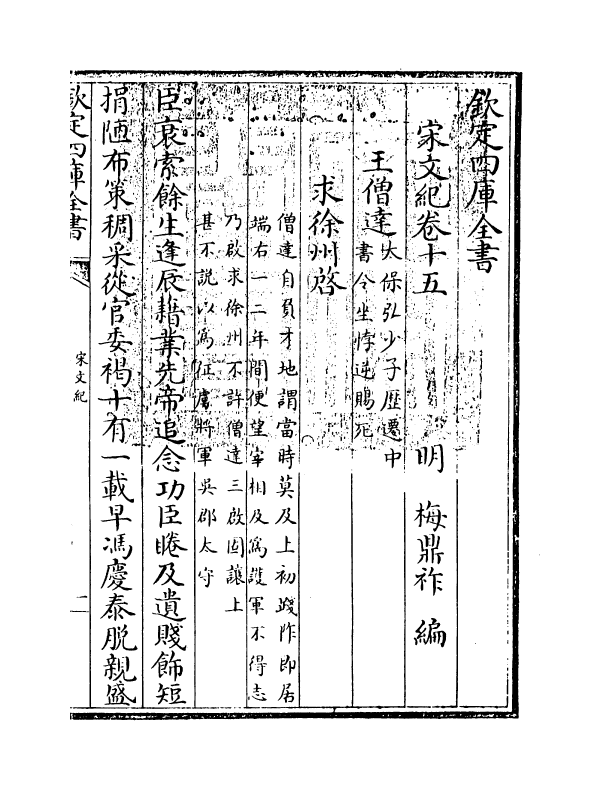 欽定四庫全書
宋文紀卷十五
明 梅鼎祚 編
王僧達
太保弘少子歷遷中
書令坐悖逆賜死
求徐州啓
僧達自負才地謂當時莫及上初踐阼即居
端右一二年間便望宰相及爲護軍不得志
乃啟求徐州不許僧達三啟固讓上
甚不說以爲征虜將軍吳郡太守
臣衰索餘生逢辰藉業先帝追念功臣睠及遺賤飾短
捐陋布策稠采從官委褐十有一載早馮慶泰脫親盛
欽定四庫全書
宋文紀
一